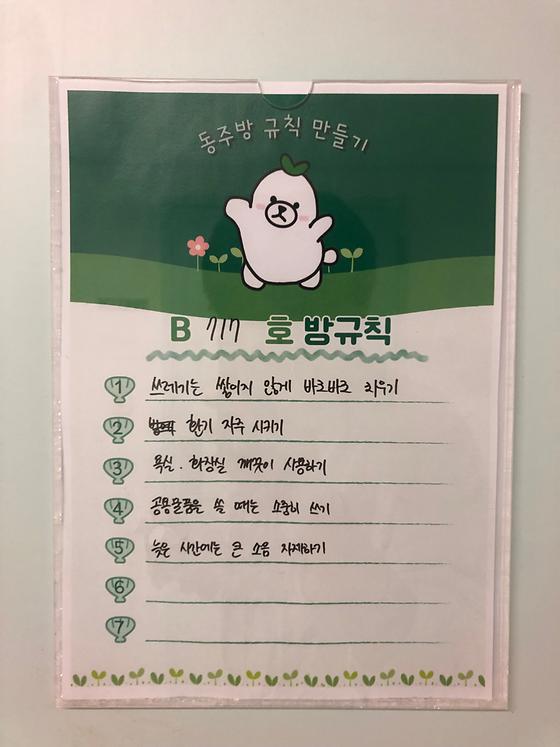 동주방 규칙 만들기
B 717 호 방규칙
1 쓰레기는 쌓이지 않게 바로바로 치우기
2 환기 자주 시키기
3 욕실. 화장실 깨끗이 사용하기
4 공용물품을 쓸 때는 소중히 쓰기
5 늦은 시간에는 큰 소음 자제하기
6
7